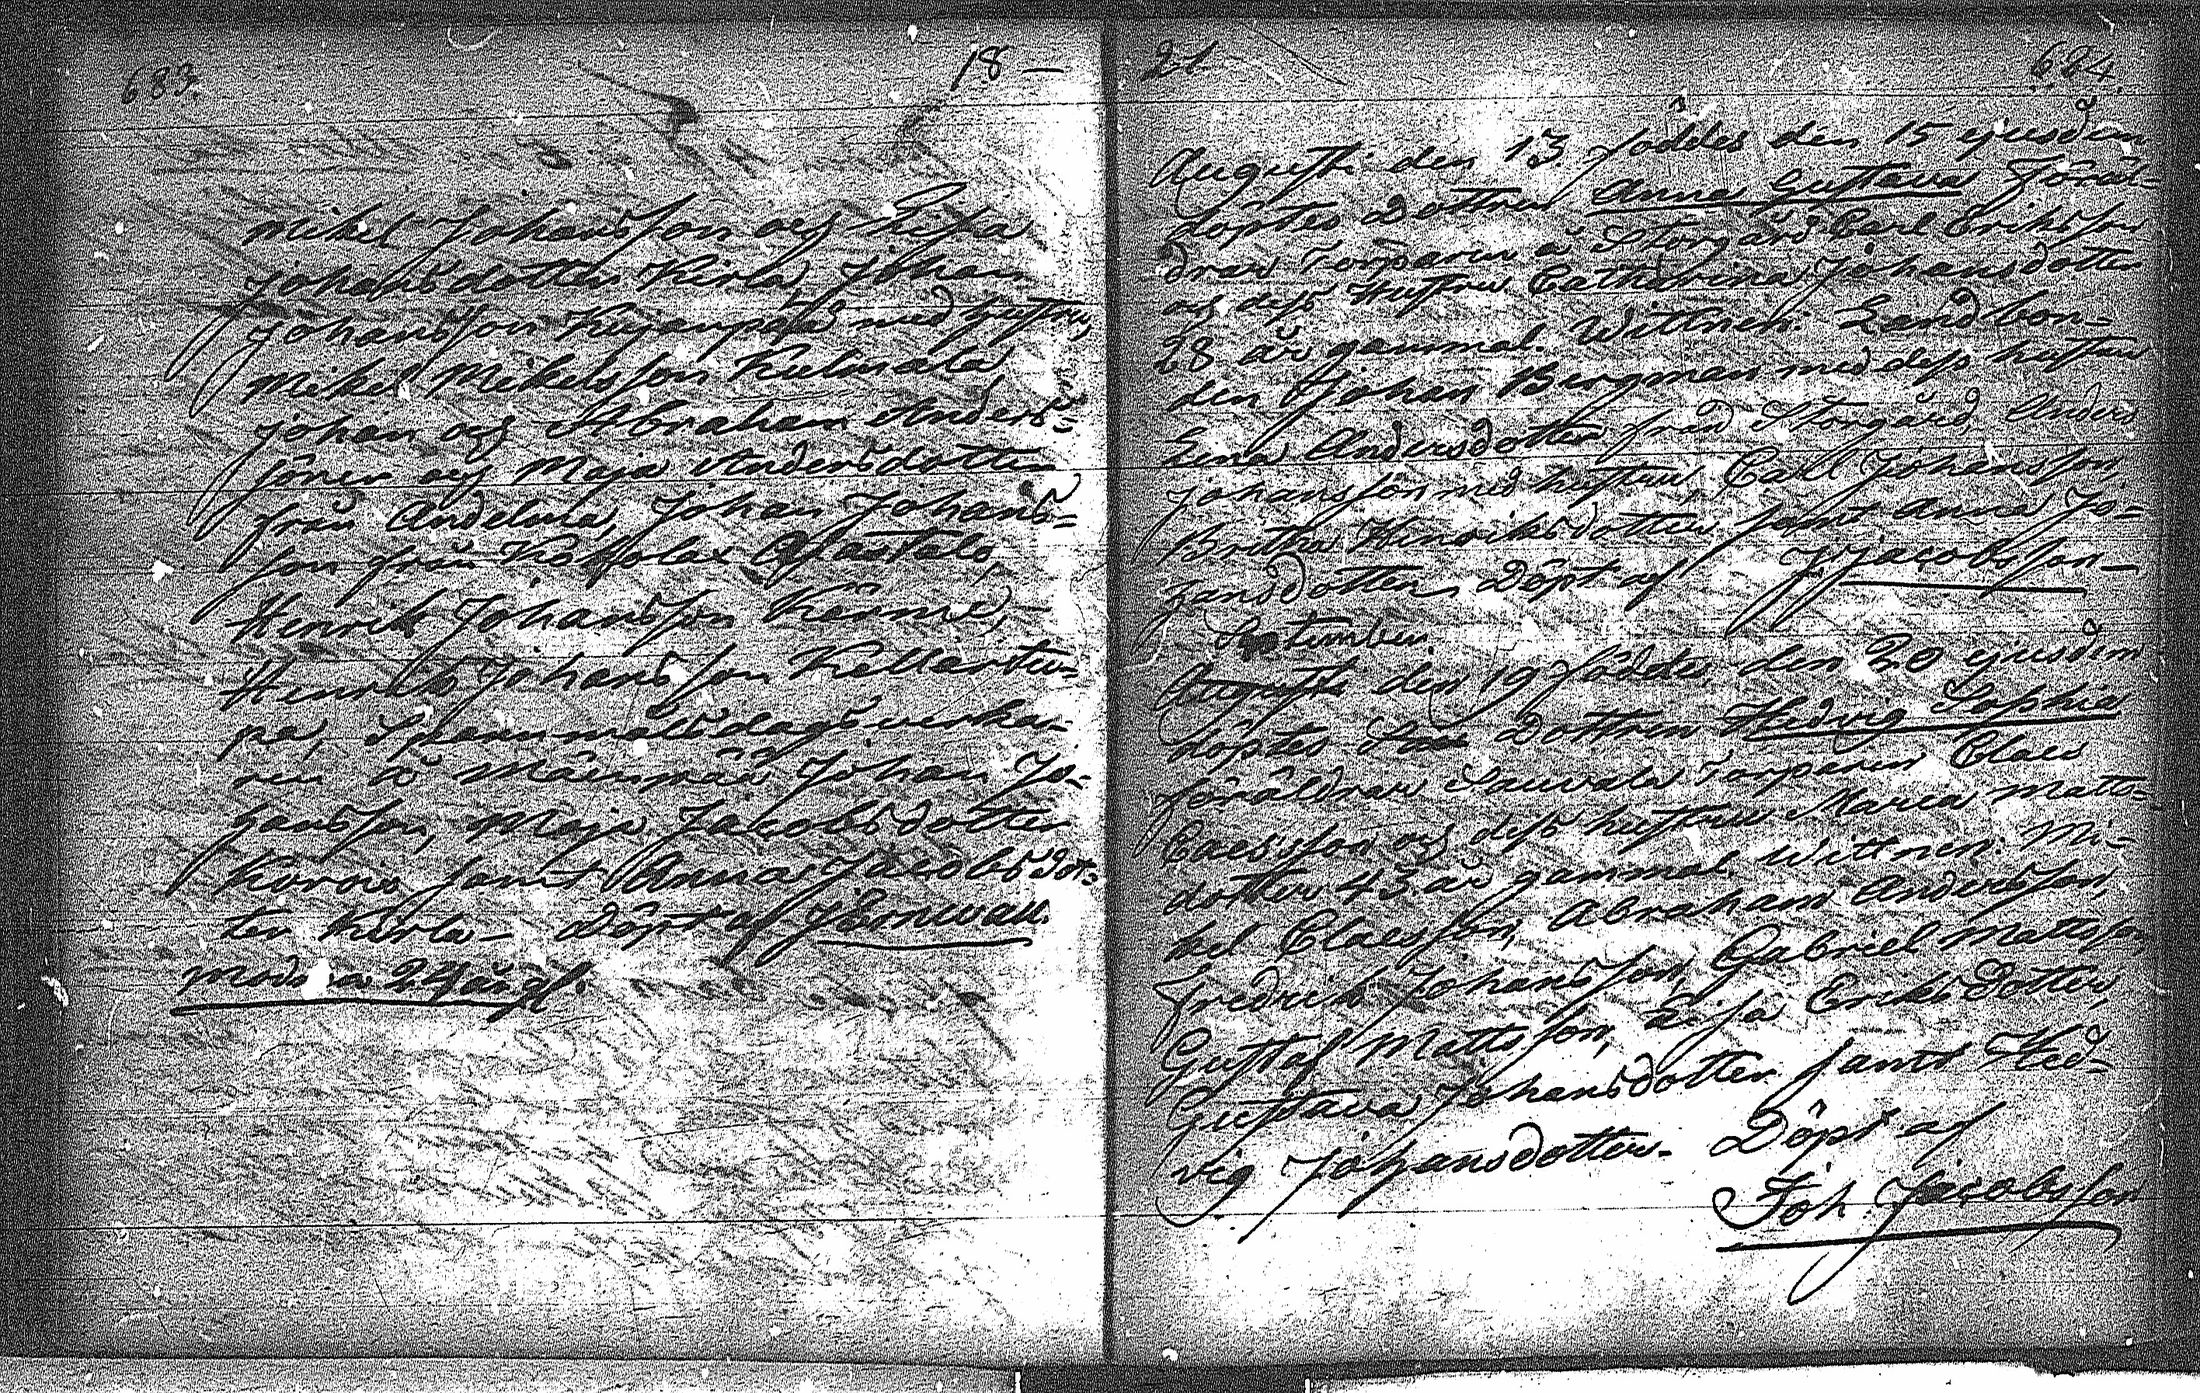 683. 18 —
Mikel Johansson och Lisa
Johansdotter Kirla, Johan
Johansson med hustru,
Mikel Mikelsson
Johan och Abraham Anders=
söner och Maja Andersdotter
från Andelma, Johan Johans=
son från
Henrik Johansson
Henrik Johansson Kellartu=
pa,
ren å Johan Jo=
hansson, Maja Jacobsdotter
Korois samt Anna Jacobsdot=
ter Kirla — Döpt af
Modren 24 år gl.
21 684.
Augusti den 13 föddes den 15 ejusdem
döptes Dottren Anna Gustava Föräl=
drar Torparen å Storgård Carl Eriksson
och dess Hustru Catharina Johansdotter
28 år gammal. Wittnen: Landbon=
den Johan Bergman med dess hustru
Lena Andersdotter från Storgård, Anders
Johansson med hustru, Call Johansson,
Britha Henriksdotter samt Anna Jo=
hansdotter, Döpt af J Jacobsson —
September
Augusti den 19 föddes den 20 ejusdem
döptes Dottren Hedvig Sophia
föräldrar Sauvala Torparen Claes
Caelsson och dess hustru Maria Matts=
dotter 43 år gammal. Wittnen: Mi=
kel Claesson, Abraham Andersson,
Fredrik Johansson, Gabriel Mattsson
Gustaf Mattsson, Lisa Eriks Dotter,
Gustava Johansdotter samt Hed=
vig Johansdotter. Döpt af
Joh Jacobsson